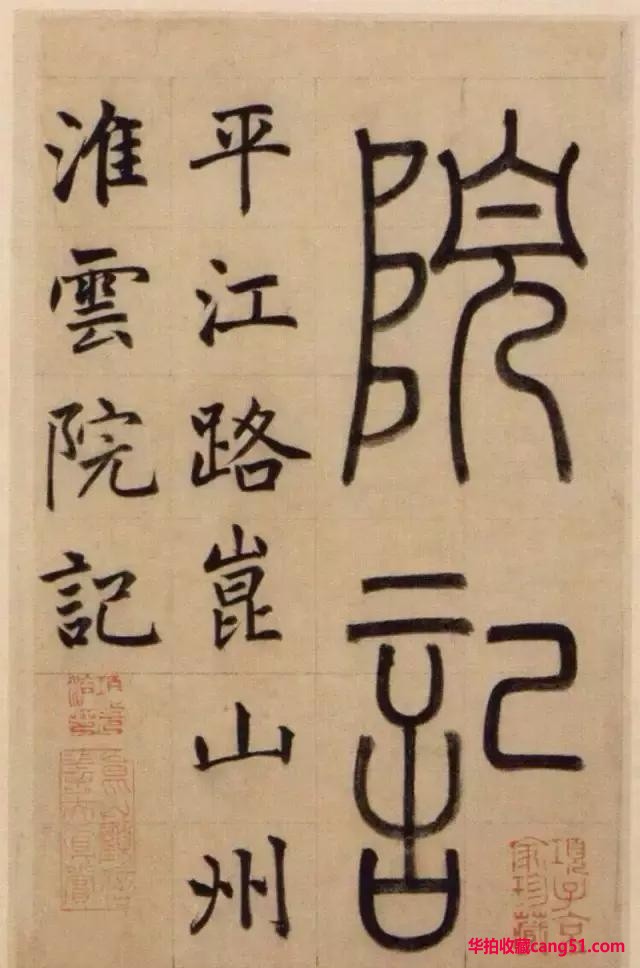 院記
平江路崑山州
淮雲院記
項子京
家珍藏
华拍收藏cang51.com